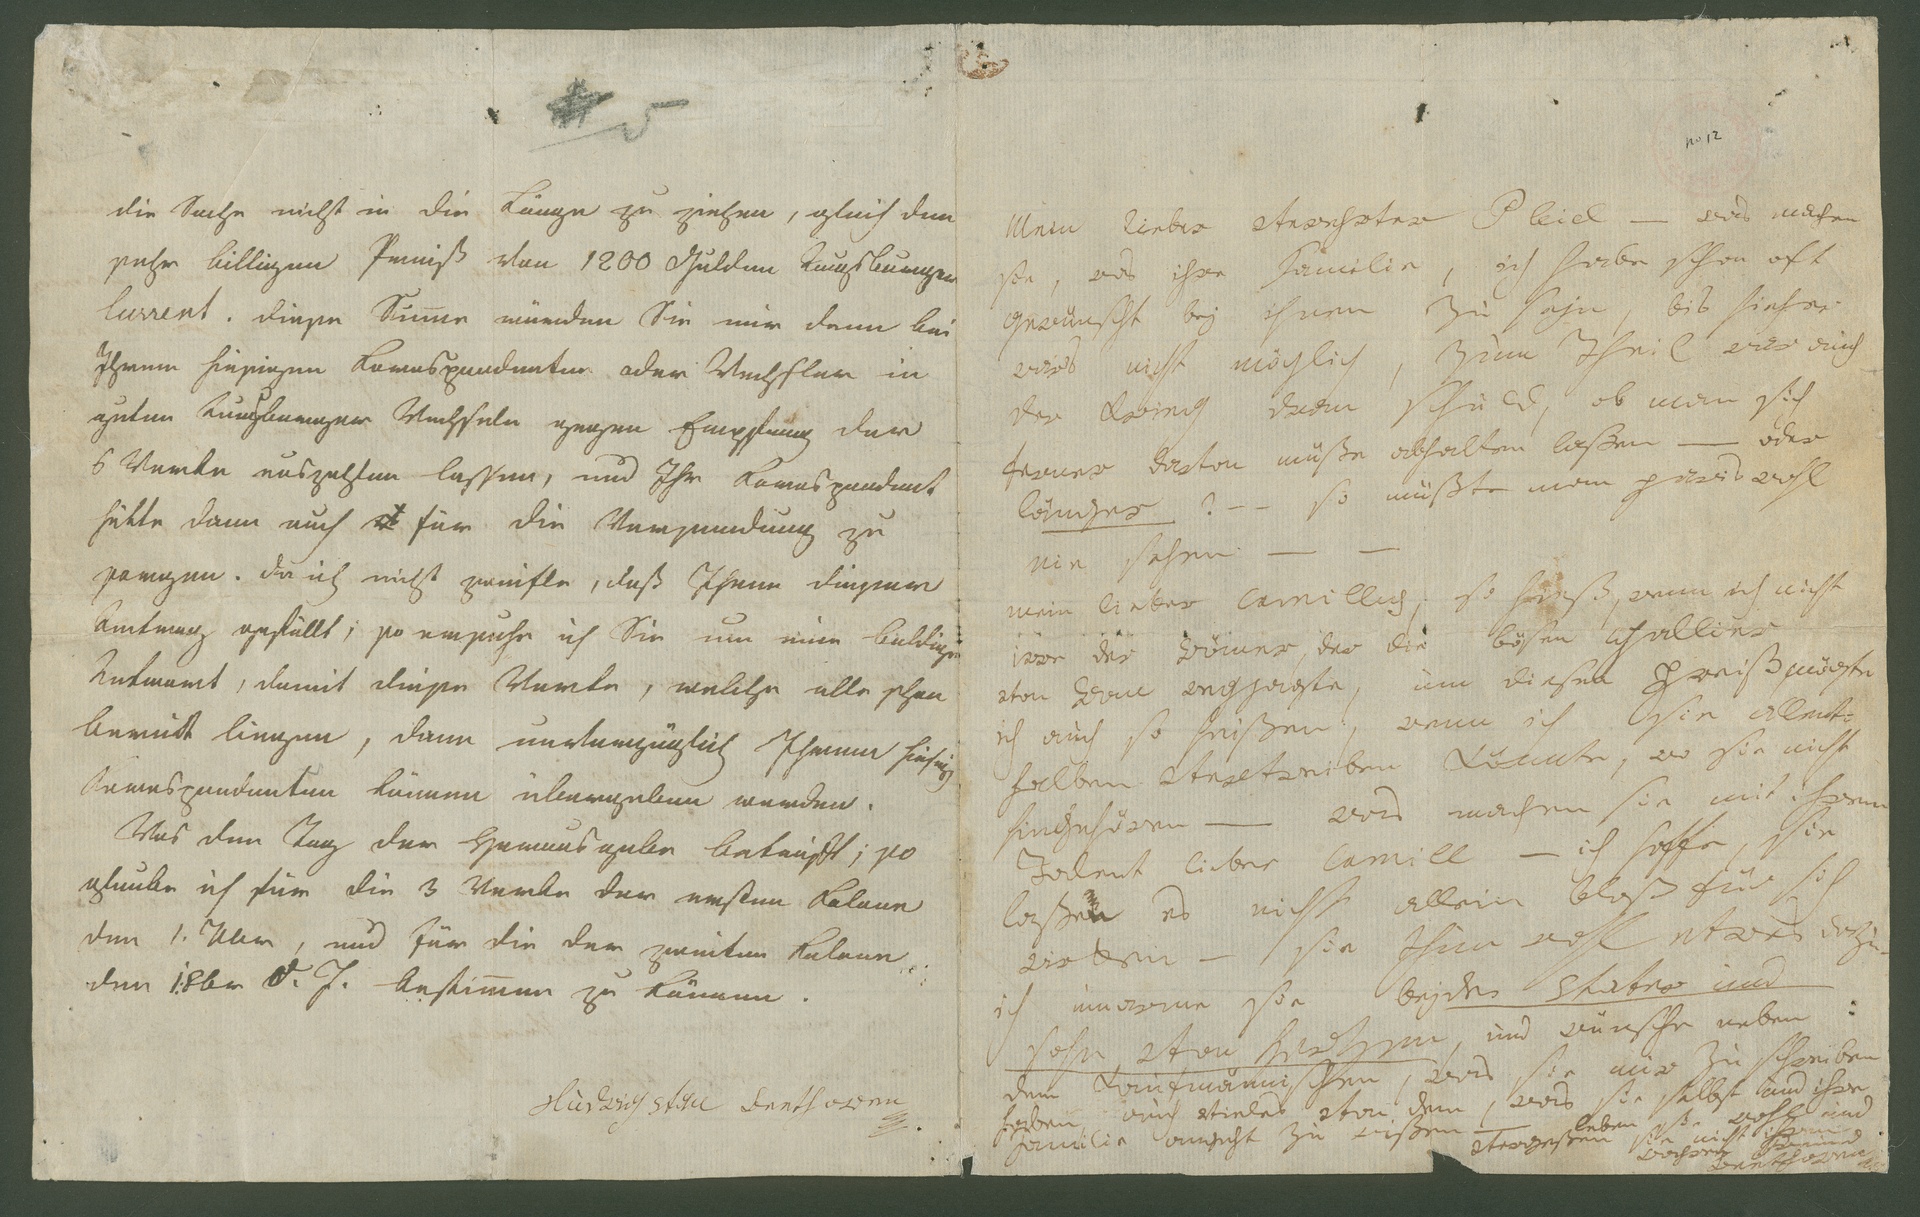 5
die Sache nicht in die Länge zu ziehen, gleich den
sehr billigen Preiß von 1200 Gulden Augsburger
Current. diese Summe würden Sie mir dann bei
Ihrem hiesigen Korrespondenten oder Wechsler in
guten Augsburger Wechseln gegen Empfang der
6 Werke auszahlen lassen, und Ihr Korrespondent
hätte dann auch für die Versendung zu
sorgen. da ich nicht zweifle, daß Ihnen dieser
Antrag gefällt; so ersuche ich Sie um eine baldige
Antwort, damit diese Werke, welche alle schon
bereit liegen, dann unverzüglich Ihrem hiesig
Korrespondenten können übergeben werden.
Was den Tag der Herausgabe betrifft; so
glaube ich für die 3 Werke der ersten Kolone
den 1. 7ber, und für die der zweiten Kolone
den 1. 8ber d. J. bestimmen zu können.
Ludwig van Beethoven
no 12
Mein lieber verehrter Pleiel — was machen
sie, was ihre Familie, ich habe schon oft
gewünscht bey ihnen zu seyn, bis hieher
wars nicht möglich, zum Theil war auch
der Krieg dran schuld, ob man sich
ferner davon müße abhalten laßen — oder
länger? -- so müßte man paris wohl
nie sehen — —
mein lieber Camillus, so hieß, wenn ich nicht
irre der Römer, der die bösen Gallier
von Rom wegjagte, um diesen Preiß mögte
ich auch so heißen, wenn ich sie allent-
halben vertreiben könnte, wo sie nicht
hingehören — was machen sie mit ihrem
Talent lieber Camill — ich hoffe, sie
laßen es nicht allein bloß für sich
wirken — sie thun wohl etwas dazu —
ich umarme sie beyde Vater und
sohn von Herzen, und wünsche neben
dem Kaufmännischen, was sie mir zu schreiben
haben auch vieles von dem, was sie selbst und ihre
Familie angeht zu wißen — leben sie wohl und
vergeßen sie nicht ihren
wahren Freund
Beethoven